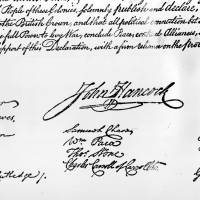 People of these Colonies, solemnly publish and declare,
the British Crown, and that all political connection
full Power to levy War, conclude Peace, contract Alliances,
support of this Declaration, with a firm reliance on the
John Hancock
Samuel Chase
Wm. Paca
Thos. Stone
Charles Carroll of Carrollton